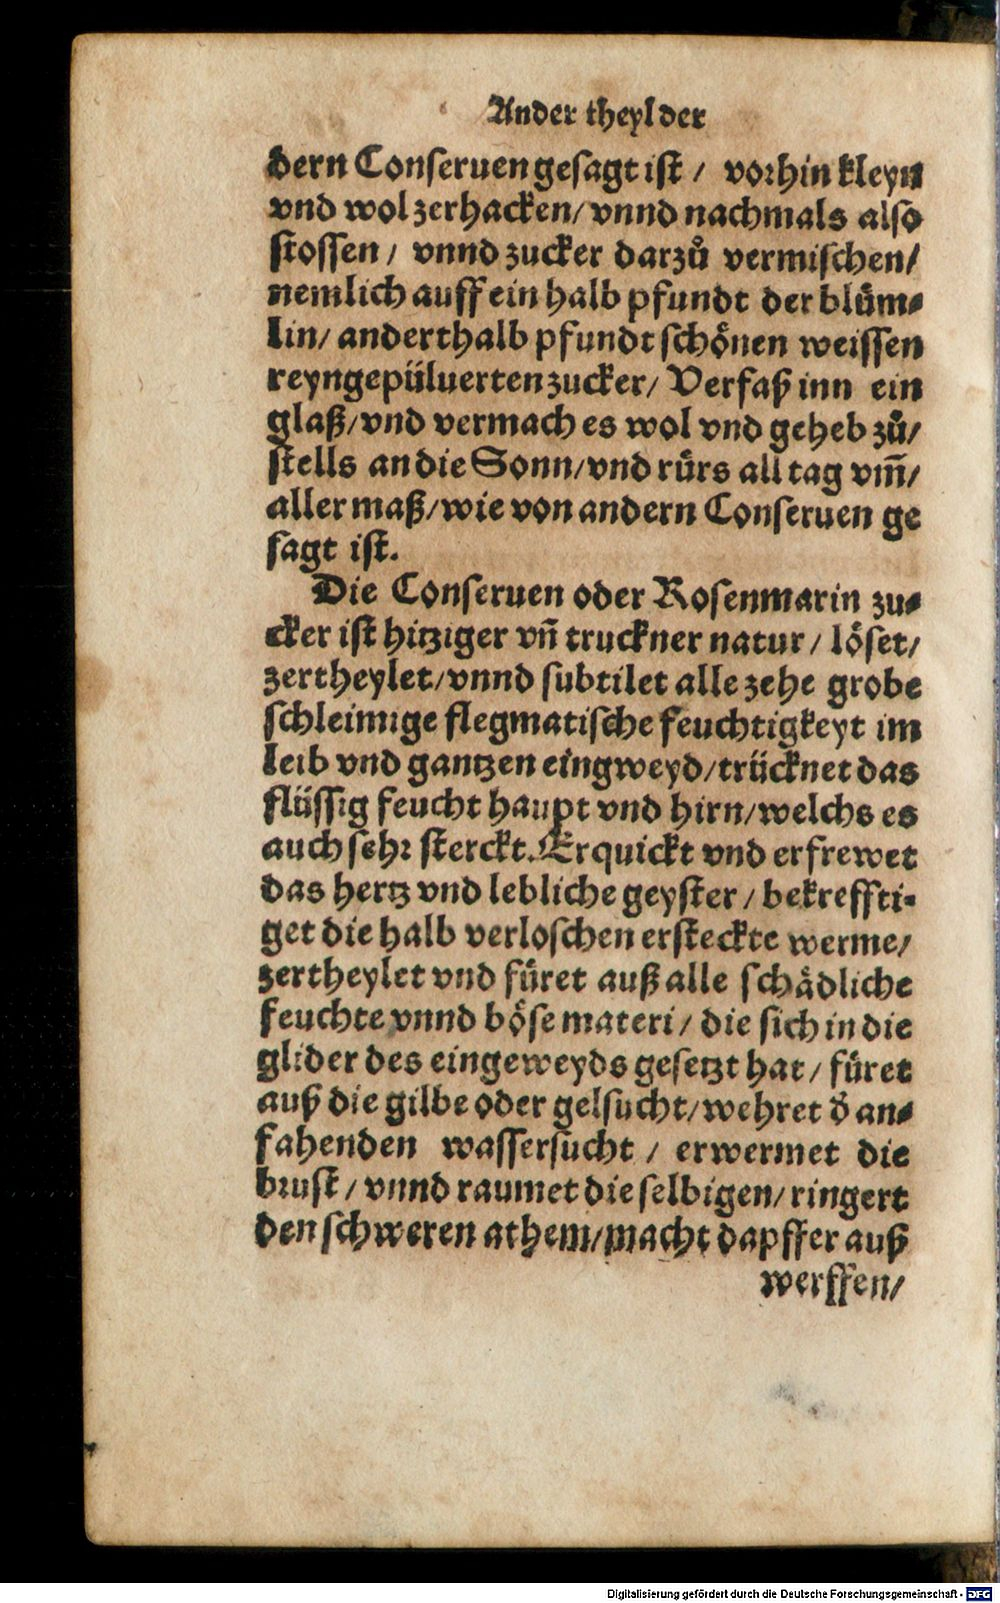 Ander theyl der
dern Conseruen gesagt ist / vorhin kleyn
vnd wol zerhacken / vnnd nachmals also
stossen / vnnd zucker darzů vermischen /
nemlich auff ein halb pfundt der blům-
lin / anderthalb pfundt schönen weissen
reyngepülverten zucker / Verfaß inn ein
glaß / vnd vermach es wol vnd geheb zů /
stells an die Sonn / vnd rürs all tag vm̄ /
aller maß / wie von andern Conseruen ge
sagt ist.
Die Conseruen oder Rosenmarin zu-
cker ist hitziger vn̄ truckner natur / löset /
zertheylet / vnnd subtilet alle zehe grobe
schleimige flegmatische feuchtigkeyt im
leib vnd gantzen eingweyd / trücknet das
flüssig feucht haupt vnd hirn / welchs es
auch sehr sterckt. Erquickt vnd erfrewet
das hertz vnd lebliche geyster / bekreffti-
get die halb verloschen ersteckte werme /
zertheylet vnd füret auß alle schädliche
feuchte vnnd böse materi / die sich in die
glider des eingeweyds gesetzt hat / füret
auß die gilbe oder gelsucht / wehret d̄ an-
fahenden wassersucht / erwermet die
brust / vnnd raumet die selbigen / ringert
den schweren athem / macht dapffer auß
werffen /
Digitalisierung gefördert durch die Deutsche Forschungsgemeinschaft - DFG